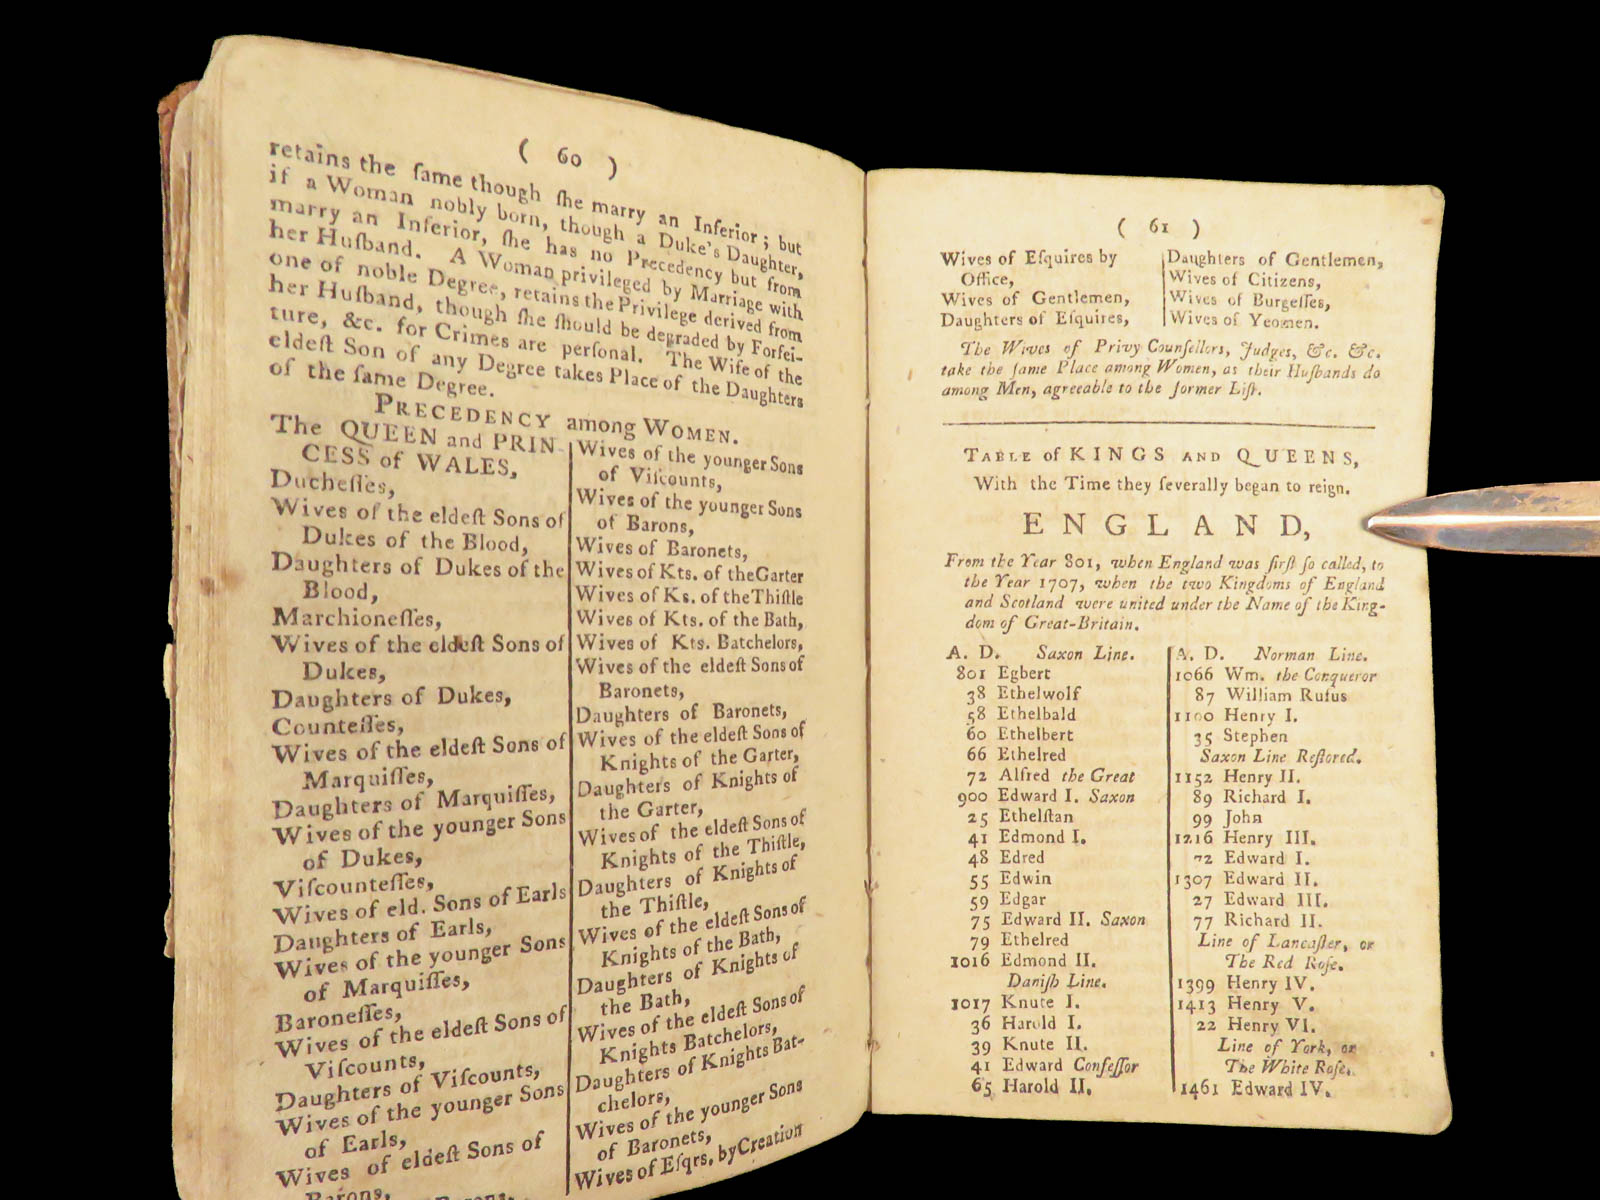 ( 60 )
retains the ſame though ſhe marry an Inferior; but
if a Woman nobly born, though a Duke's Daughter,
marry an Inferior, ſhe has no Precedency but from
her Huſband. A Woman privileged by Marriage with
one of noble Degree, retains the Privilege derived from
her Huſband, though ſhe ſhould be degraded by Forfei-
ture, &c. for Crimes are perſonal. The Wife of the
eldeſt Son of any Degree takes Place of the Daughters
of the ſame Degree.
PRECEDENCY among WOMEN.
The QUEEN and PRIN-
CESS of WALES,
Ducheſſes,
Wives of the eldeſt Sons of
Dukes of the Blood,
Daughters of Dukes of the
Blood,
Marchioneſſes,
Wives of the eldeſt Sons of
Dukes,
Daughters of Dukes,
Counteſſes,
Wives of the eldeſt Sons of
Marquiſſes,
Daughters of Marquiſſes,
Wives of the younger Sons
of Dukes,
Viſcounteſſes,
Wives of eld. Sons of Earls
Daughters of Earls,
Wives of the younger Sons
of Marquiſſes,
Baroneſſes,
Wives of the eldeſt Sons of
Viſcounts,
Daughters of Viſcounts,
Wives of the younger Sons
of Earls,
Wives of eldeſt Sons of
Barons,
Wives of the younger Sons
of Viſcounts,
Wives of the younger Sons
of Barons,
Wives of Baronets,
Wives of Kts. of the Garter
Wives of Ks. of the Thiſtle
Wives of Kts. of the Bath,
Wives of Kts. Batchelors,
Wives of the eldeſt Sons of
Baronets,
Daughters of Baronets,
Wives of the eldeſt Sons of
Knights of the Garter,
Daughters of Knights of
the Garter,
Wives of the eldeſt Sons of
Knights of the Thiſtle,
Daughters of Knights of
the Thiſtle,
Wives of the eldeſt Sons of
Knights of the Bath,
Daughters of Knights of
the Bath,
Wives of the eldeſt Sons of
Knights Batchelors,
Daughters of Knights Bat-
chelors,
Wives of the younger Sons
of Baronets,
Wives of Eſqrs. by Creation
( 61 )
Wives of Eſquires by
Office,
Wives of Gentlemen,
Daughters of Eſquires,
Daughters of Gentlemen,
Wives of Citizens,
Wives of Burgeſſes,
Wives of Yeomen.
The Wives of Privy Counſellors, Judges, &c. &c.
take the ſame Place among Women, as their Huſbands do
among Men, agreeable to the former Liſt.
TABLE of KINGS AND QUEENS,
With the Time they ſeverally began to reign.
ENGLAND,
From the Year 801, when England was firſt ſo called, to
the Year 1707, when the two Kingdoms of England
and Scotland were united under the Name of the King-
dom of Great-Britain.
A. D. Saxon Line.
801 Egbert
38 Ethelwolf
58 Ethelbald
60 Ethelbert
66 Ethelred
72 Alfred the Great
900 Edward I. Saxon
25 Ethelſtan
41 Edmond I.
48 Edred
55 Edwin
59 Edgar
75 Edward II. Saxon
79 Ethelred
1016 Edmond II.
Daniſh Line.
1017 Knute I.
36 Harold I.
39 Knute II.
41 Edward Confeſſor
65 Harold II.
A. D. Norman Line.
1066 Wm. the Conqueror
87 William Rufus
1100 Henry I.
35 Stephen
Saxon Line Reſtored.
1152 Henry II.
89 Richard I.
99 John
1216 Henry III.
72 Edward I.
1307 Edward II.
27 Edward III.
77 Richard II.
Line of Lancaſter, or
The Red Roſe.
1399 Henry IV.
1413 Henry V.
22 Henry VI.
Line of York, or
The White Roſe.
1461 Edward IV.